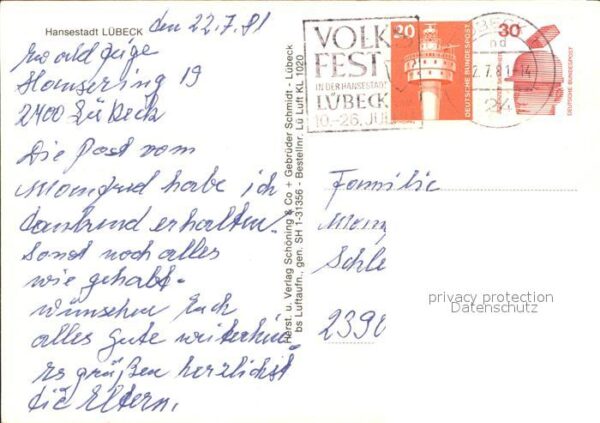 Hansestadt LÜBECK
den 22.7.81
Hansering 19
2400 Lübeck
Die Post vom
Manfred habe ich
dankend erhalten.
Sonst noch alles
wie gehabt.
wünschen Euch
alles Gute weiterhin.
Es grüßen herzlichst
die Eltern.
Herst. u. Verlag Schöning & Co + Gebrüder Schmidt - Lübeck
bs Luftaufn., gen. SH 1-31356 - Bestellnr. Lü Luft KL 1020
VOLKS
FEST
IN DER HANSESTADT
LÜBECK
10.-26. JULI
20
DEUTSCHE BUNDESPOST
LÜBECK
24
30
DEUTSCHE BUNDESPOST
Familie
Schle
2390
privacy protection
Datenschutz